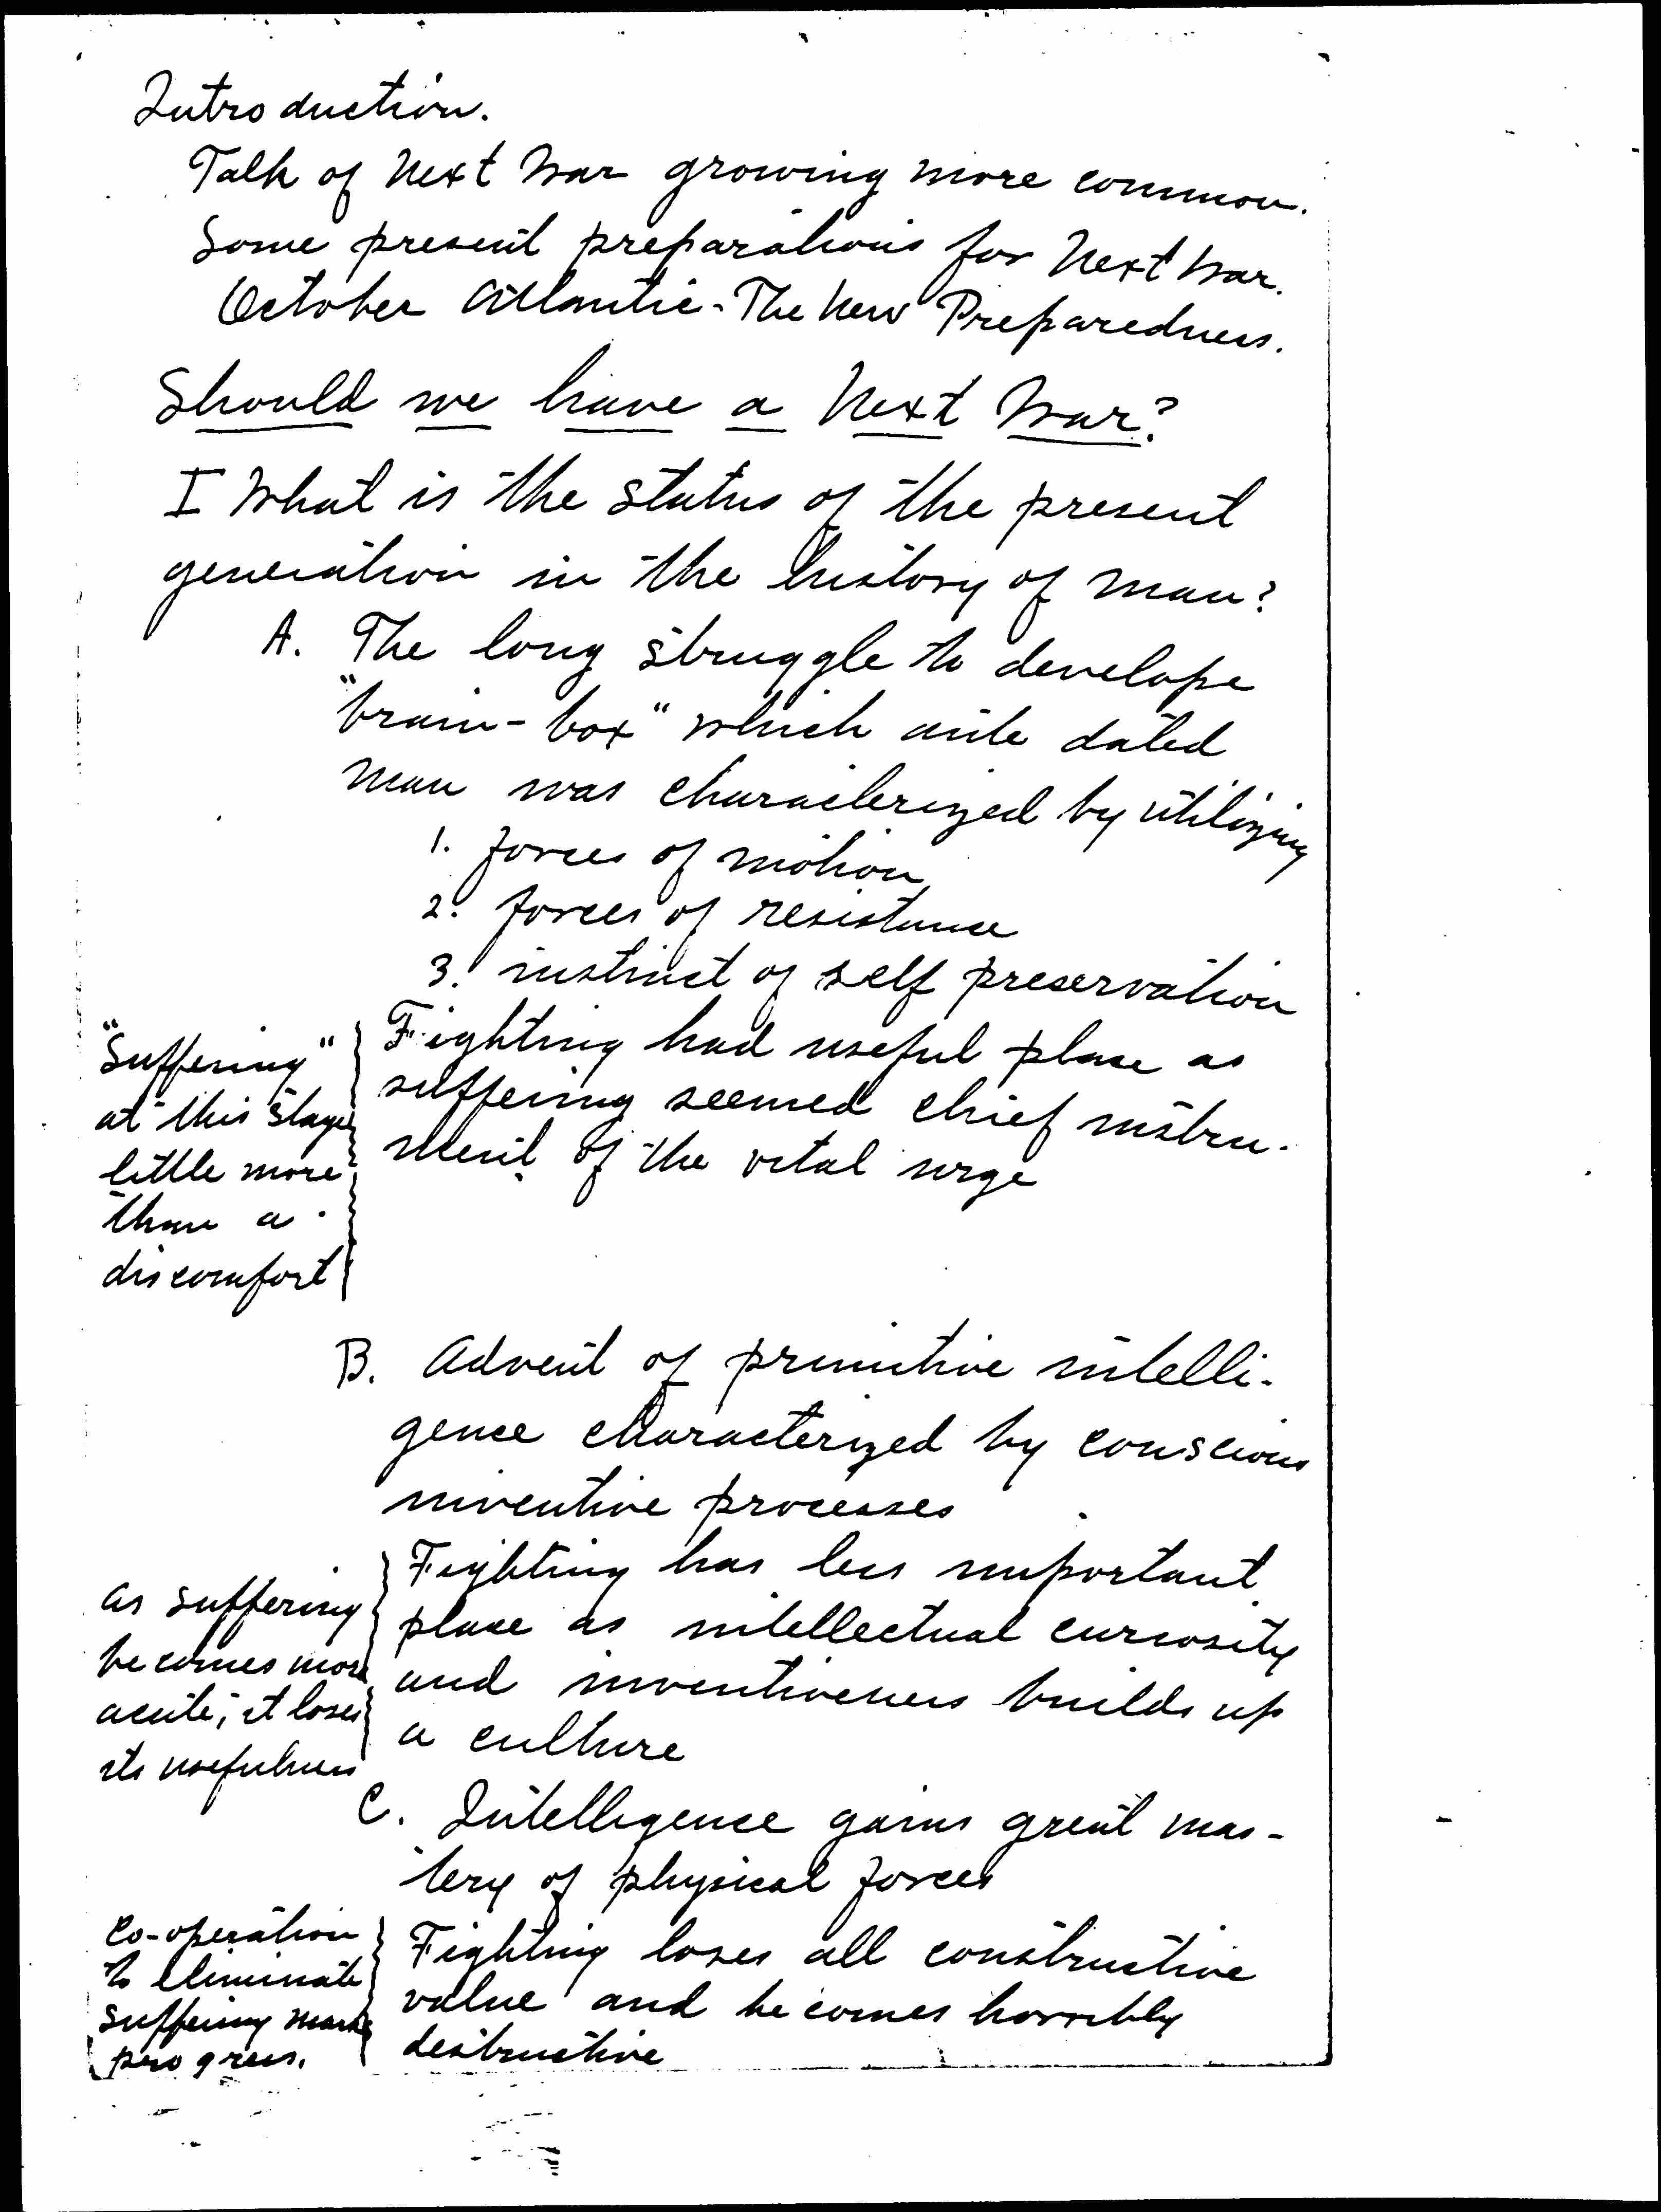 Introduction.
Talk of Next War growing more common.
Some present preparations for Next War.
October Atlantic - The New Preparedness.
Should we have a Next War?
I What is the status of the present
generation in the history of man?
A. The long struggle to develope
"brain-box" which ante dated
man was characterized by utilizing
1. forces of motion
2. forces of resistance
3. instinct of self preservation
"Suffering"
at this stage
little more
than a
discomfort
Fighting had useful place as
suffering seemed chief instru-
ment of the vital urge
B. Advent of primitive intelli-
gence characterized by conscious
inventive processes
as suffering
becomes more
acute, it loses
its usefulness
Fighting has less important
place as intellectual curiosity
and inventiveness builds up
a culture
C. Intelligence gains great mas-
tery of physical forces
Co-operation
to eliminate
suffering marks
progress.
Fighting loses all constructive
value and becomes horribly
destructive